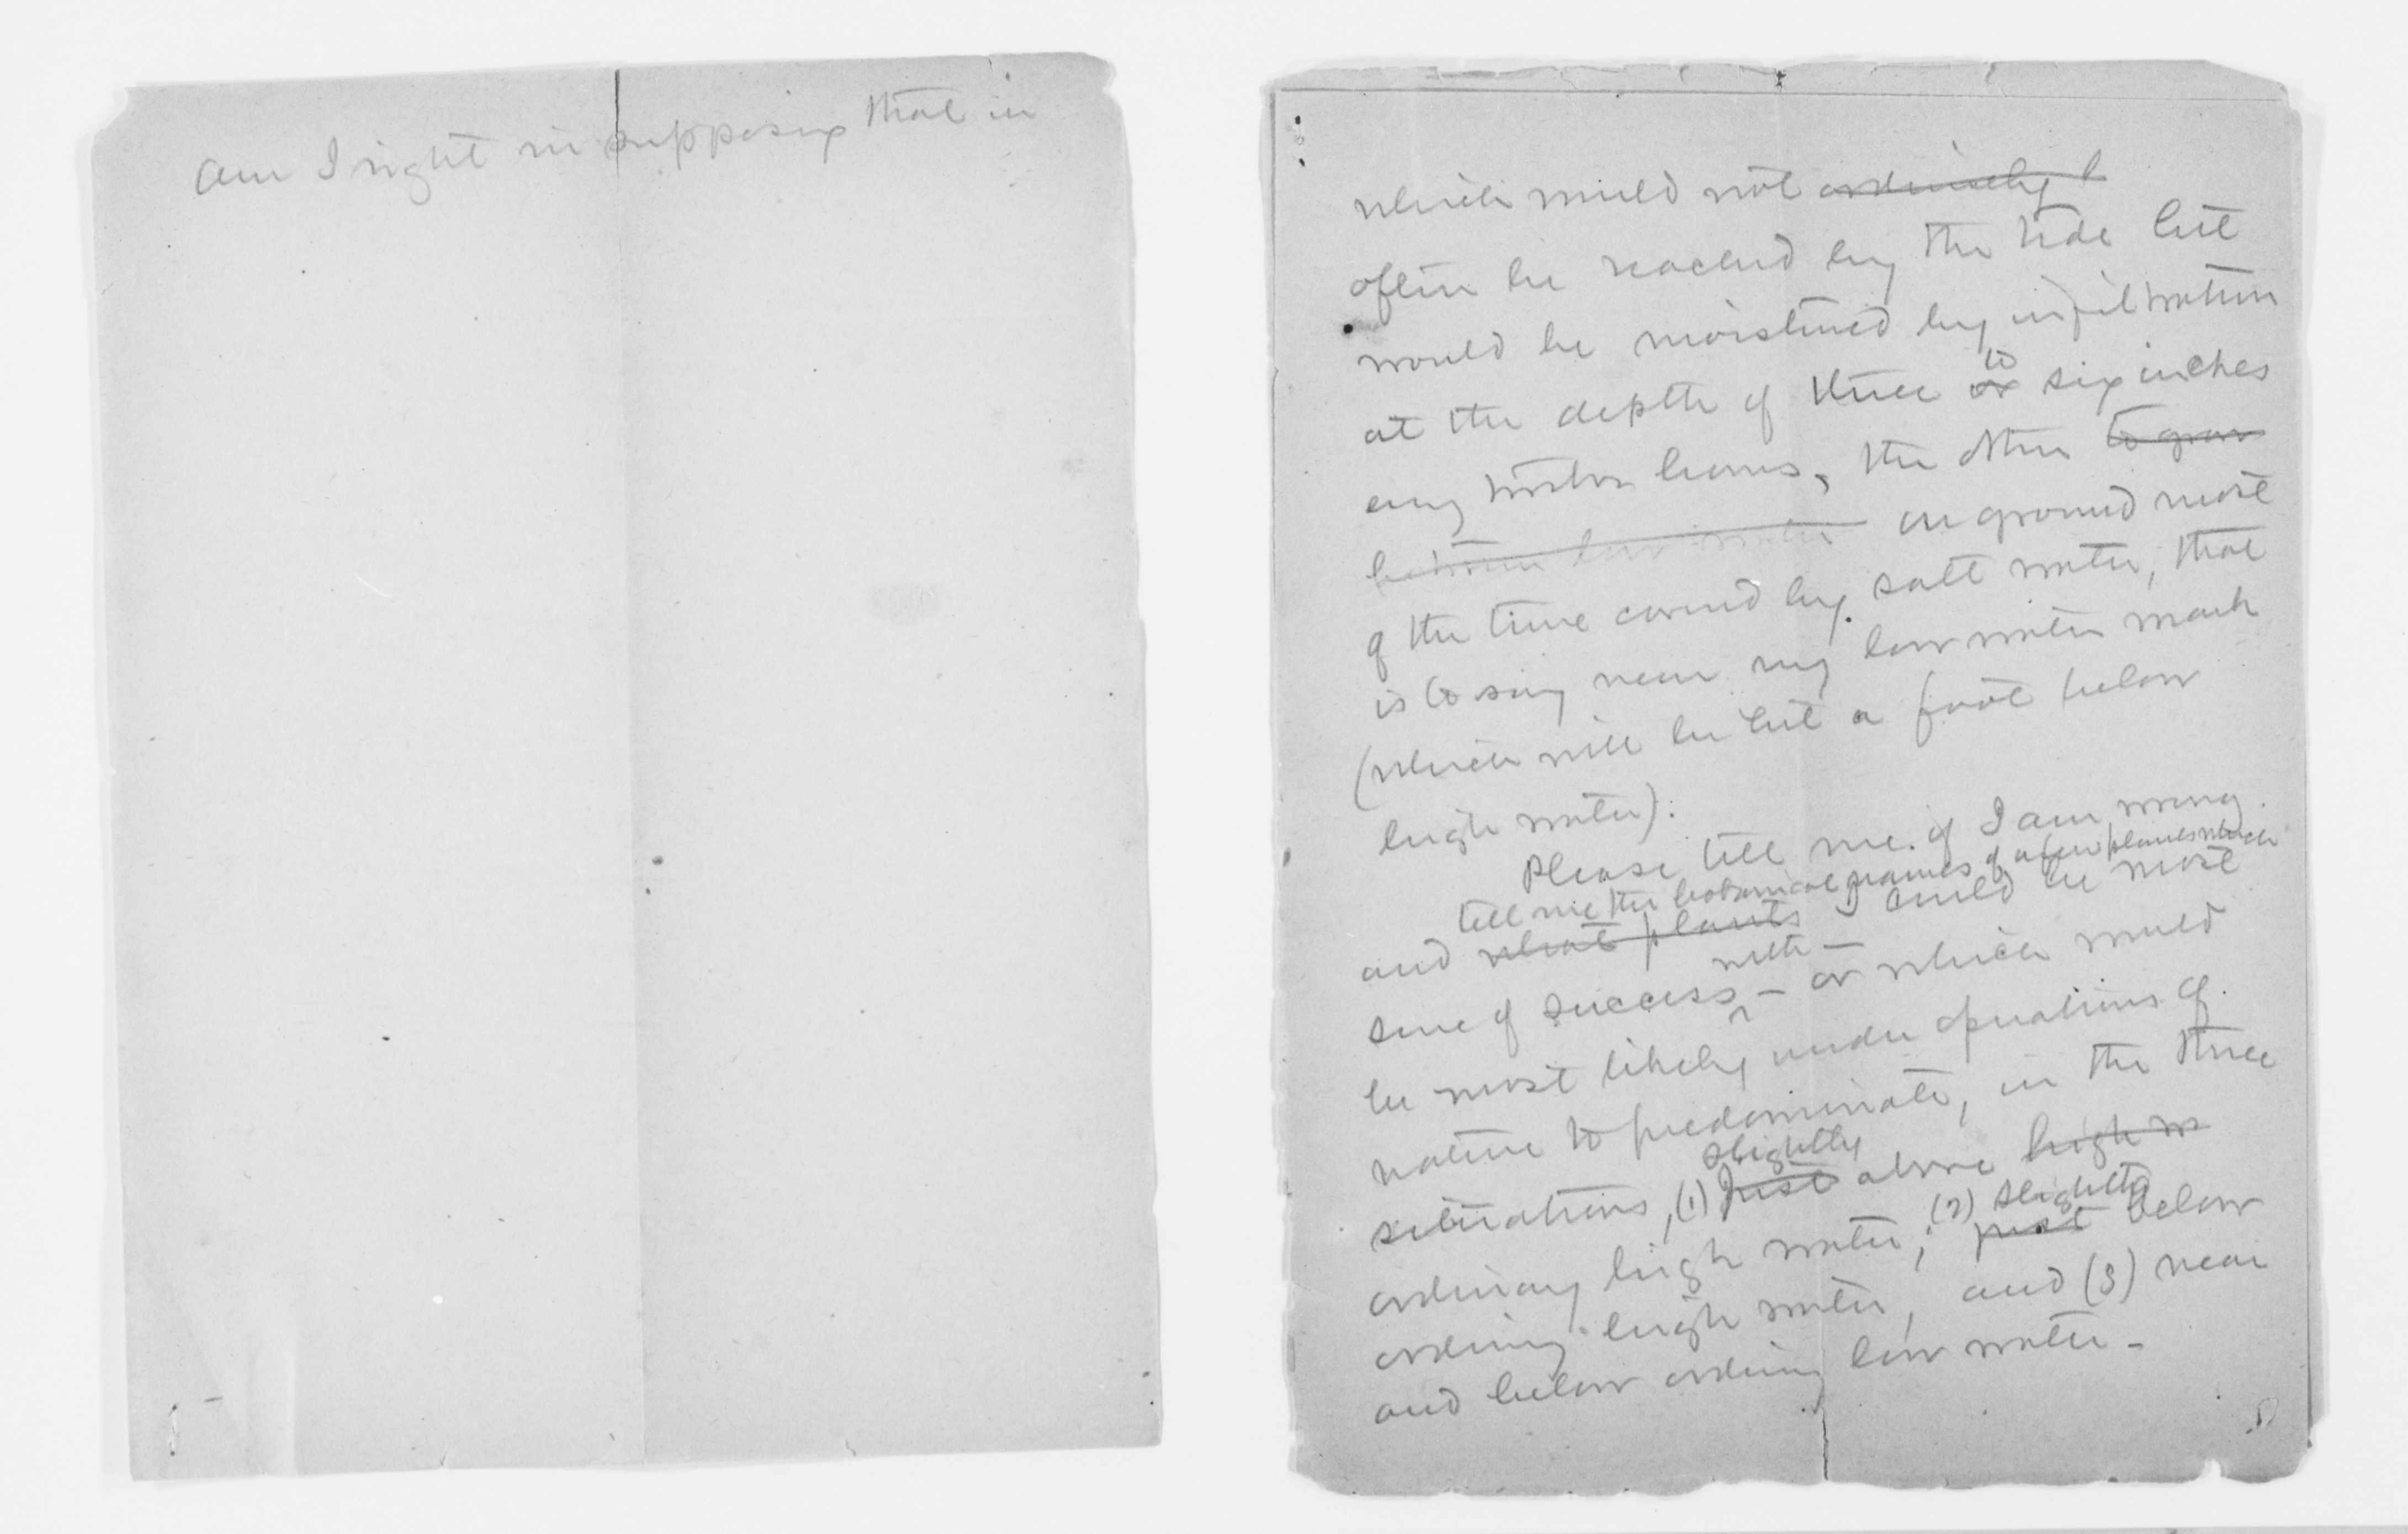 Am I right in supposing that in
which would not ordinarily b
often be reached by the tide but
would be moistened by infiltration
to
at the depth of three or six inches
every twelve hours, the other to grow
between low water on ground most
of the time covered by salt water, that
is to say near my low water mark
(which will be but a foot below
high water).
Please tell me if I am wrong
tell me the botanical names of a few plants which
and what plants I could be most
with —
sure of success – or which would
be most likely under operations of
nature to predominate, in the three
slightly
situations, (1) just above high w
ordinary high water; (2) slightly just below
ordinary high water, and (3) near
and below ordinary low water –